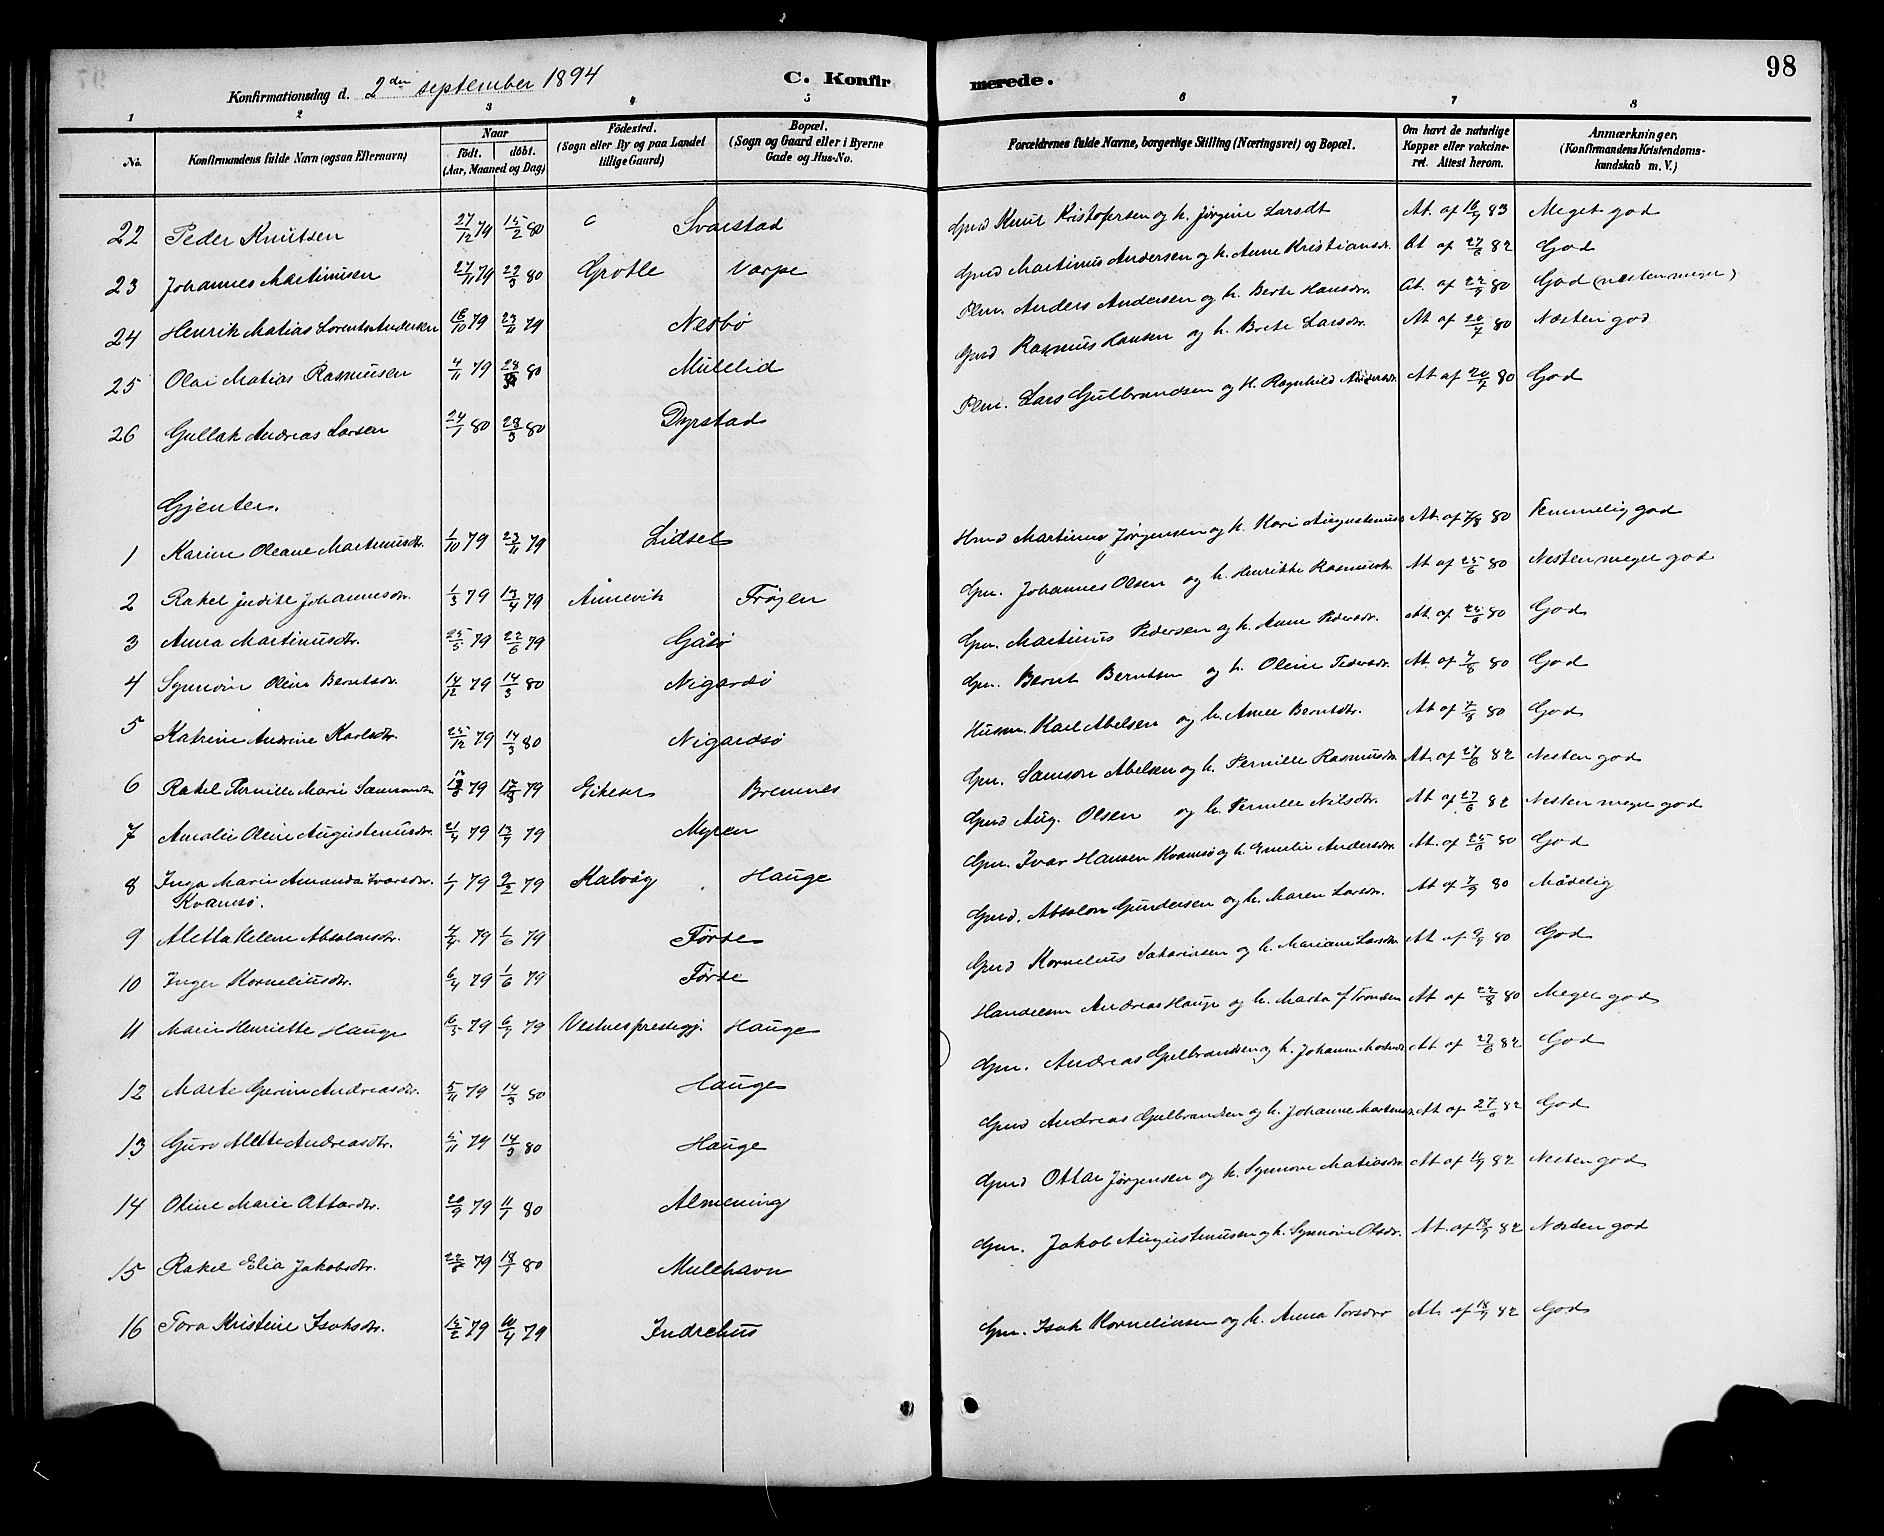 98
Konfirmationsdag d. 2den september 1894 C. Konfirmerede.
1 2 3 4 5 6 7 8
No. Konfirmandens fulde Navn (ogsaa Efternavn) Naar født. døbt. (Aar, Maaned og Dag) Fødested. (Sogn eller By og paa Landet tillige Gaard) Bopæl. (Sogn og Gaard eller i Byerne Gade og Hus-No. Forældrenes fulde Navne, borgerlige Stilling (Næringsvei) og Bopæl. Om havt de naturlige Kopper eller vakcineret. Attest herom. Anmærkninger, (Konfirmandens Kristendomskundskab m. V.)
22 Peder Knutsen 27/12 79 15/2 80 Svarstad Gmd Knut Kristofersen og h. Jørgine Larsdt At. af 16/9 83 Meget god
23 Johannes Martinusen 27/11 79 29/3 80 Grotle Varpe Gmd Martinus Andersen og h. Anne Kristiansdr. At af 27/6 82 God
24 Henrik Matias Lorents Andersen 16/10 79 23/11 79 Nesbø Plm. Anders Andersen og h. Berte Hansdr. At. af 22/9 80 God (næsten meget)
25 Olai Matias Rasmusen 4/11 79 80 Mulelid Gmd Rasmus Hansen og h. Brete Larsdr. At af 20/7 80 Næsten god
26 Gullak Andreas Larsen 24/1 80 28/3 80 Dyrstad Plm. Lars Gulbrandsen og h. Ragnhild Andersdr At af 20/7 80 God
Gjenter.
1 Karine Oleane Martinusdr. 1/10 79 23/11 79 Lidset Hmd Martinus Jørgensen og h. Kari Augustinusd At. af 7/8 80 Temmelig god
2 Rakel Judite Johannesdr. 1/3 79 13/4 79 Ånnevik Frøyen Gm. Johannes Olsen og h. Henrikke Rasmusdr At af 25/6 80 Nesten meget god
3 Anna Martinusdr. 25/5 79 22/6 79 Gåsø Gm. Martinus Pedersen og h. Anne Pedersdr. At. af 25/6 80 God
4 Synnøve Oline Berntsdr. 14/12 79 14/3 80 Nigardsø Gm. Bernt Berntsen og h. Oline Pedersdr. At. af 7/8 80 God
5 Katrine Andrine Karlsdr. 25/12 79 14/3 80 Nigardsø Husm. Karl Abelsen og h. Anne Berntsdr. At af 7/8 80 God
6 Rakel Pernille Marie Samsonsdr. 79 79 Eikeset Bremnes Gm. Samson Abelsen og h. Pernille Rasmusdr At. af 27/6 82 Nesten god
7 Amalie Oline Augustinusdr. 21/4 79 13/7 79 Myren Gmd Aug. Olsen og h. Pernille Nilsdr. At af 27/6 82 Nesten meget god
8 Inga Marie Amanda Ivarsdr. Kvamsø. 1/1 79 9/2 79 Kalvåg Hauge Gm. Ivar Hansen Kvamsø og h. Emelie Andersdr At. af 25/6 80 God
9 Aletta Helene Absalonsdr. 4/4 79 1/6 79 Førde Gmd. Absalon Gundersen og h. Maren Larsdr. At af 7/9 80 Mådelig
10 Inger Korneliusdr. 6/4 79 1/6 79 Førde Gmd Kornelius Sakariasen og h. Mariane Larsdr At af 9/9 80 God
11 Marie Henriette Hauge 6/5 79 6/7 79 Vestnes prestegj. Hauge Handelsm Andreas Hauge og h. Marta f. Tronsen At af 22/8 80 Meget god
12 Marte Gurine Andreasdr. 5/11 79 14/3 80 Hauge Gm. Andreas Gulbrandsen og h. Johanne Martinsd At af 27/6 82 God
13 Guro Alette Andreasdr. 5/11 79 14/3 80 Hauge Gmd Andreas Gulbrandsen og h. Johanne Martinsd At af 27/6 82 God
14 Oline Marie Ottardr. 20/9 79 11/1 80 Almening Gmd Ottar Jørgensen og h. Synnøve Matiasdr At af 11/9 82 Nesten god
15 Rakel Elia Jakobsdr. 22/8 79 18/1 80 Mulehavn Gm. Jakob Augustinusen og h. Synnøve Olsdr. At. af 18/9 82 Næsten god
16 Tora Kristine Isaksdr. 15/2 79 10/4 79 Indrehus Gm. Isak Korneliusen og h. Anna Torsdr At. af 18/9 82 God